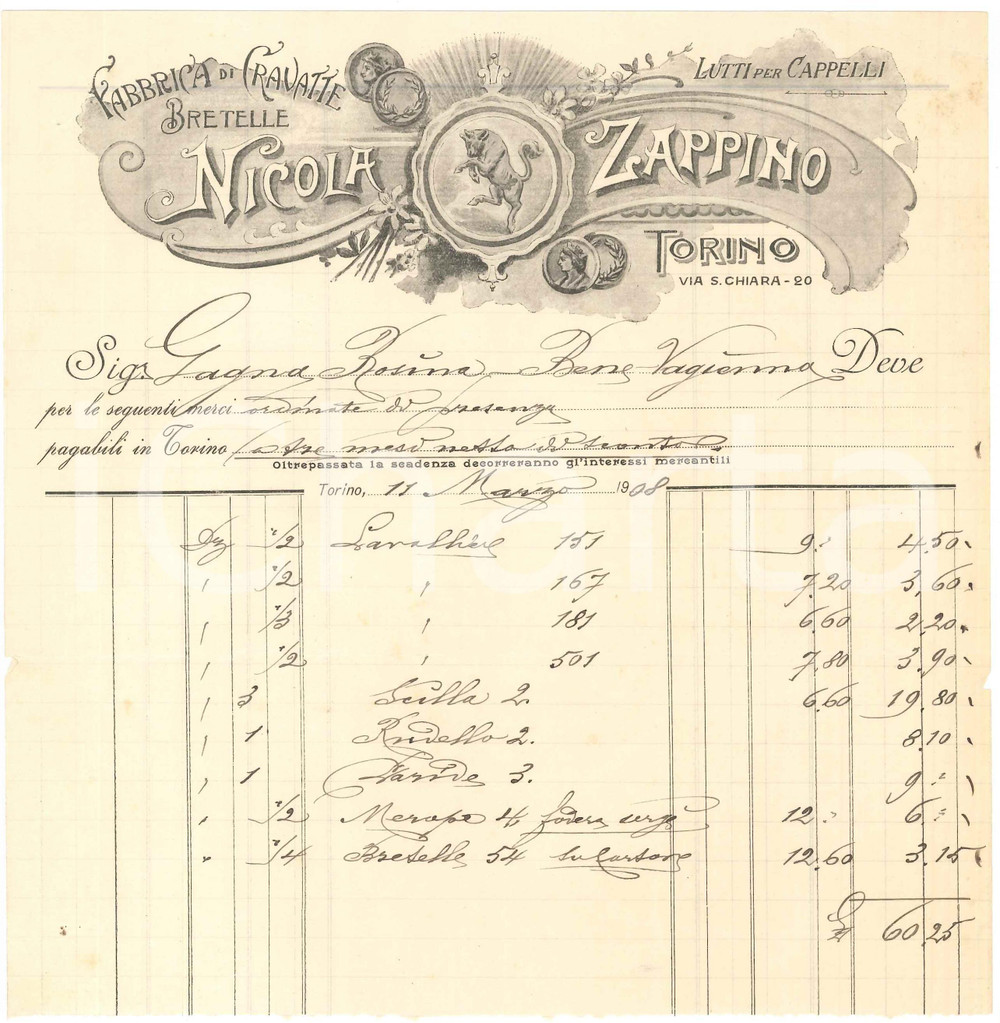 FABBRICA DI CRAVATTE
BRETELLE
LUTTI PER CAPPELLI
NICOLA ZAPPINO
TORINO
VIA S. CHIARA - 20
Sigr. Gagna Rosina Bene Vagienna Deve
per le seguenti merci ordinate di presenza
pagabili in Torino a tre mesi netto di sconto
Oltrepassata la scadenza decorreranno gl'interessi mercantili
Torino, 11 Marzo 1908
Dz 1/2 Lavallière 151 9.- 4.50
" 1/2 " 167 7.20 3.60
" 1/3 " 181 6.60 2.20
" 1/2 " 501 7.80 3.90
" 3 2. 6.60 19.80
" 1 2. 8.10
" 1 3. 9.-
" 1/2 Merope 4 fodera 12.- 6.-
" 1/4 Bretelle 54 12.60 3.15
£ 60.25